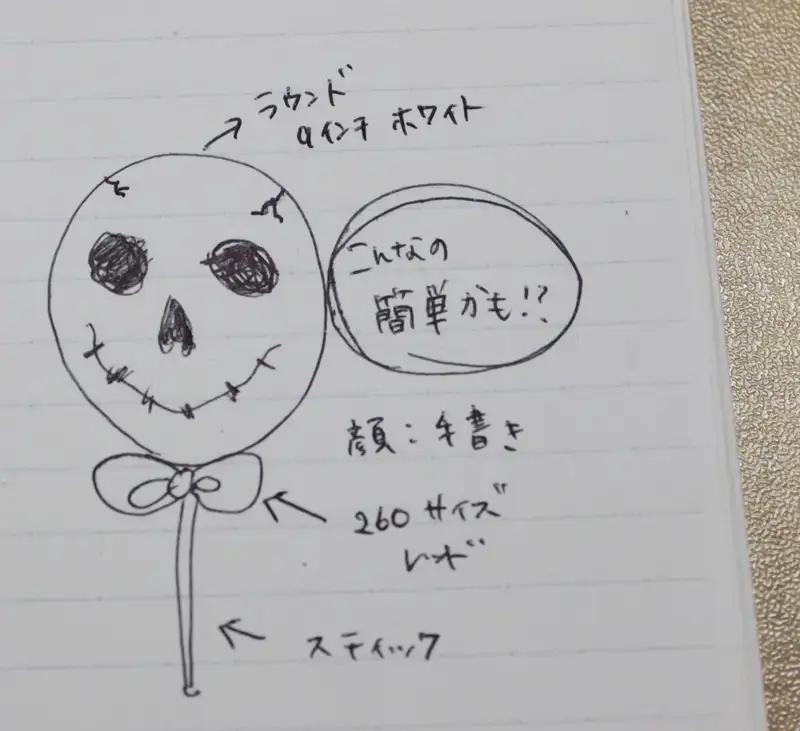 ラウンド
9インチ ホワイト
こんなの
簡単かも!?
顔:手書き
260サイズ
レッド
スティック